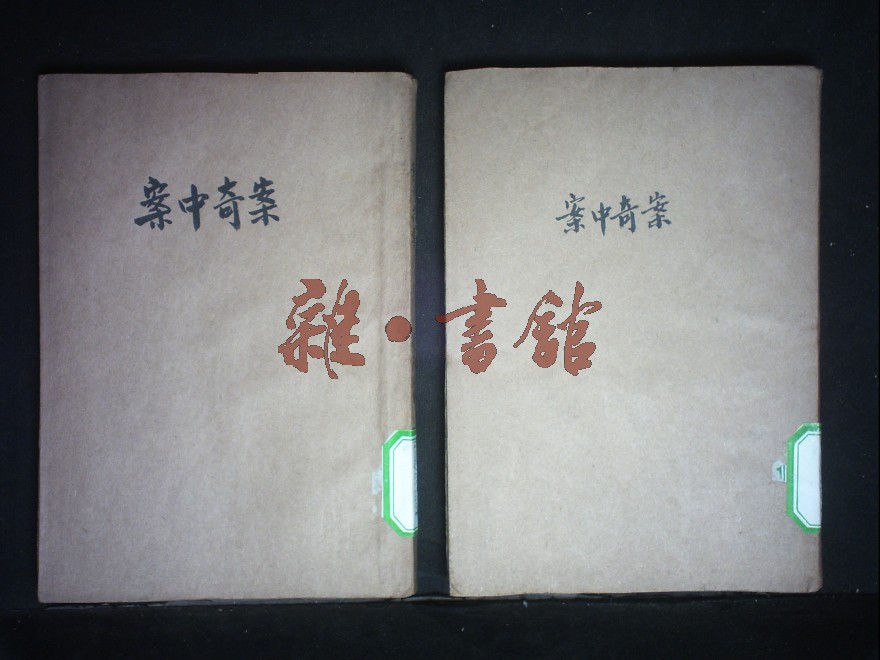 案中奇案
案中奇案
雜·書館